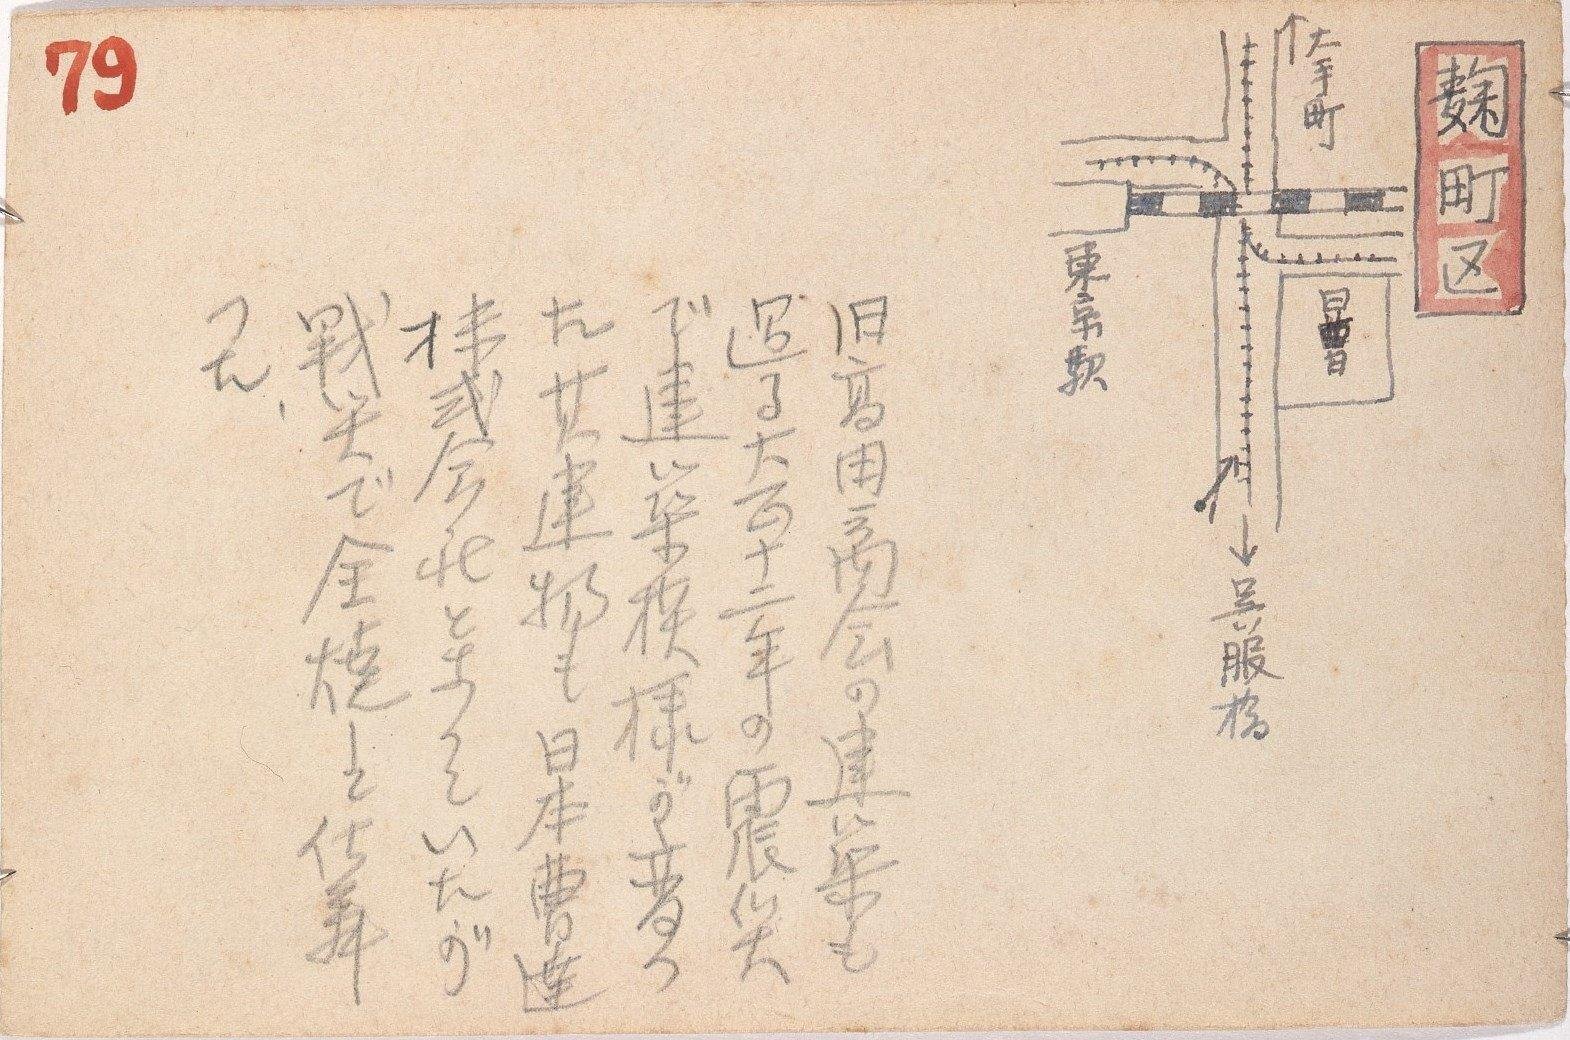 79
麹町区
大手町
日曹
東京駅
呉服橋
旧高田商会の建築も
過る大正十二年の震災
で建築模様が変つ
た其建物も日本曹達
株式会社となつていたが
戦災で全焼と仕舞
つた、